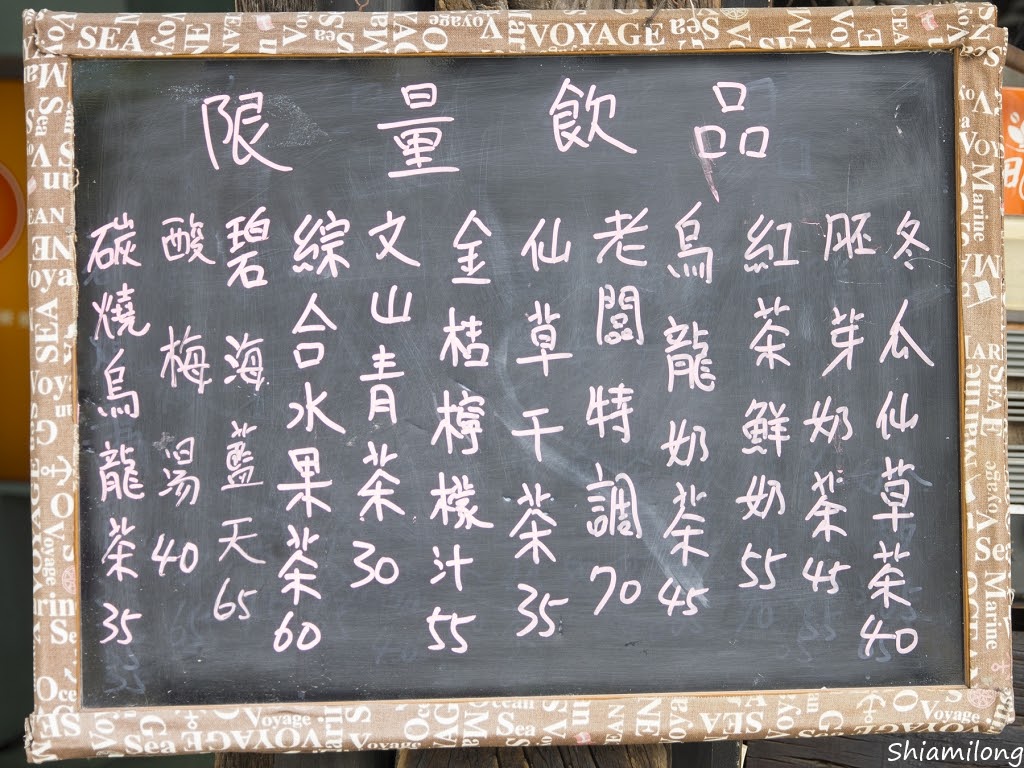 SEA Voyage VOYAGE Sea
限量飲品
冬瓜仙草茶40
胚芽奶茶45
紅茶鮮奶55
烏龍奶茶45
老闆特調70
仙草干茶35
金桔檸檬汁55
文山青茶30
綜合水果茶60
碧海藍天65
酸梅湯40
碳燒烏龍茶35
Shiamilong